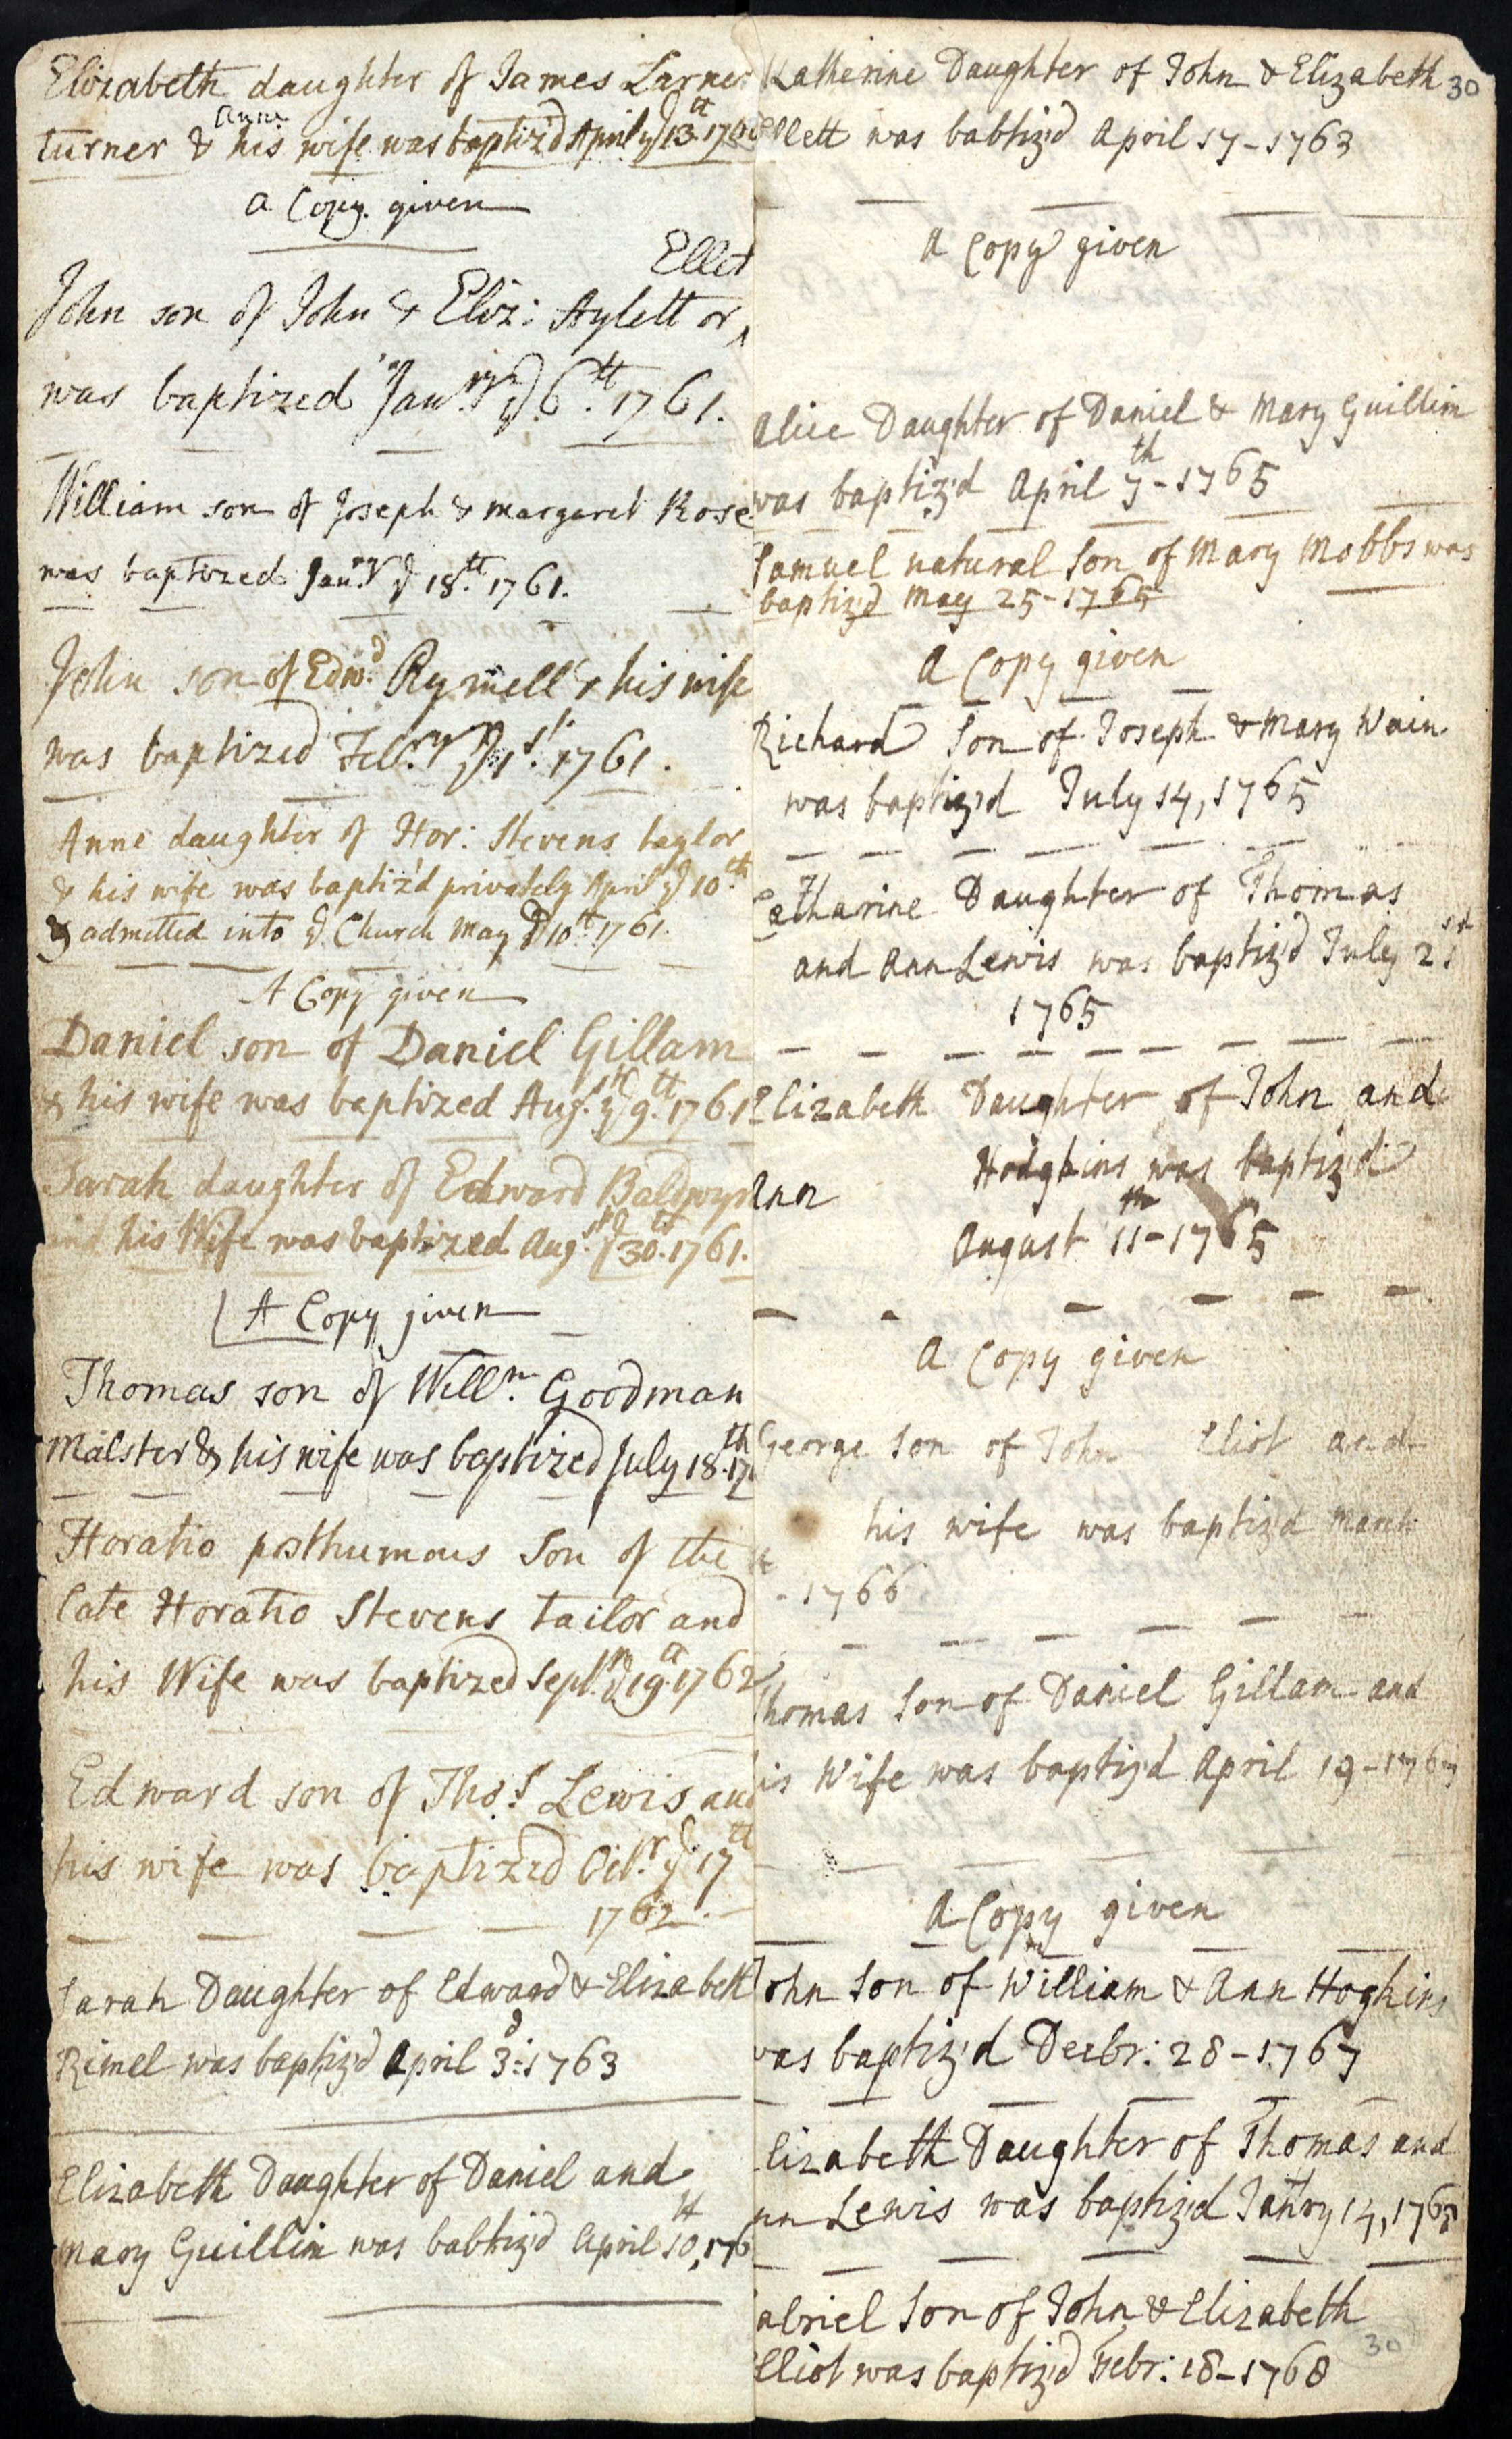 Elizabeth daughter of James Larner
turner & Anne his wife was baptiz'd April ye 13th. 176
a Copy given
Ellet
John son of John & Eliz: Aylett or
was baptized Janry. ye 6th. 1761.
William son of Joseph & Margaret Rose
was baptized Janry ye 18th. 1761.
John son of Edwd. Rymell & his wife
was baptized Febry ye 1st. 1761.
Anne daughter of Hor: Stevens taylor
& his wife was baptiz'd privately April ye 10th
& admitted into ye Church May ye 10th 1761.
A Copy given
Daniel son of Daniel Gillam
& his wife was baptized Augst. ye 9th. 1761
Sarah daughter of Edward Baldwyn
and his Wife was baptized Augst. ye 30th. 1761.
A Copy given
Thomas son of Willm. Goodman
Malster & his wife was baptized July 18th. 17
Horatio posthumous Son of the
late Horatio Stevens tailor and
his Wife was baptized Septr. ye 19th. 1762
Edward son of Thos. Lewis and
his wife was baptized Octr. ye 17th
1762.
Sarah Daughter of Edward & Elizabeth
Rimel was baptiz'd April 3d: 1763
Elizabeth Daughter of Daniel and
Mary Guillim was babtiz'd April 10th, 176
Katherine Daughter of John & Elizabeth 30
Ellett was babtiz'd April 17-1763
A Copy given
Alice Daughter of Daniel & Mary Guillim
was baptiz'd April 7th-1765
Samuel natural Son of Mary Mobbs was
baptiz'd May 25-1765
A Copy given
Richard Son of Joseph & Mary Wain
was baptiz'd July 14, 1765
Catharine Daughter of Thomas
and Ann Lewis was baptiz'd July 21st
1765
Elizabeth Daughter of John and
Ann Hodgkins was baptiz'd
August 11th-1765
A Copy given
George Son of John Eliot and
his wife was baptiz'd March
-1766
Thomas Son of Daniel Gillam and
his Wife was baptiz'd April 19-1767
A Copy given
John Son of William & Ann Hoghins
was baptiz'd Decbr: 28-1767
Elizabeth Daughter of Thomas and
Ann Lewis was baptiz'd Janry 14, 1768
Gabriel Son of John & Elizabeth
Elliot was baptiz'd Febr: 18-1768
30